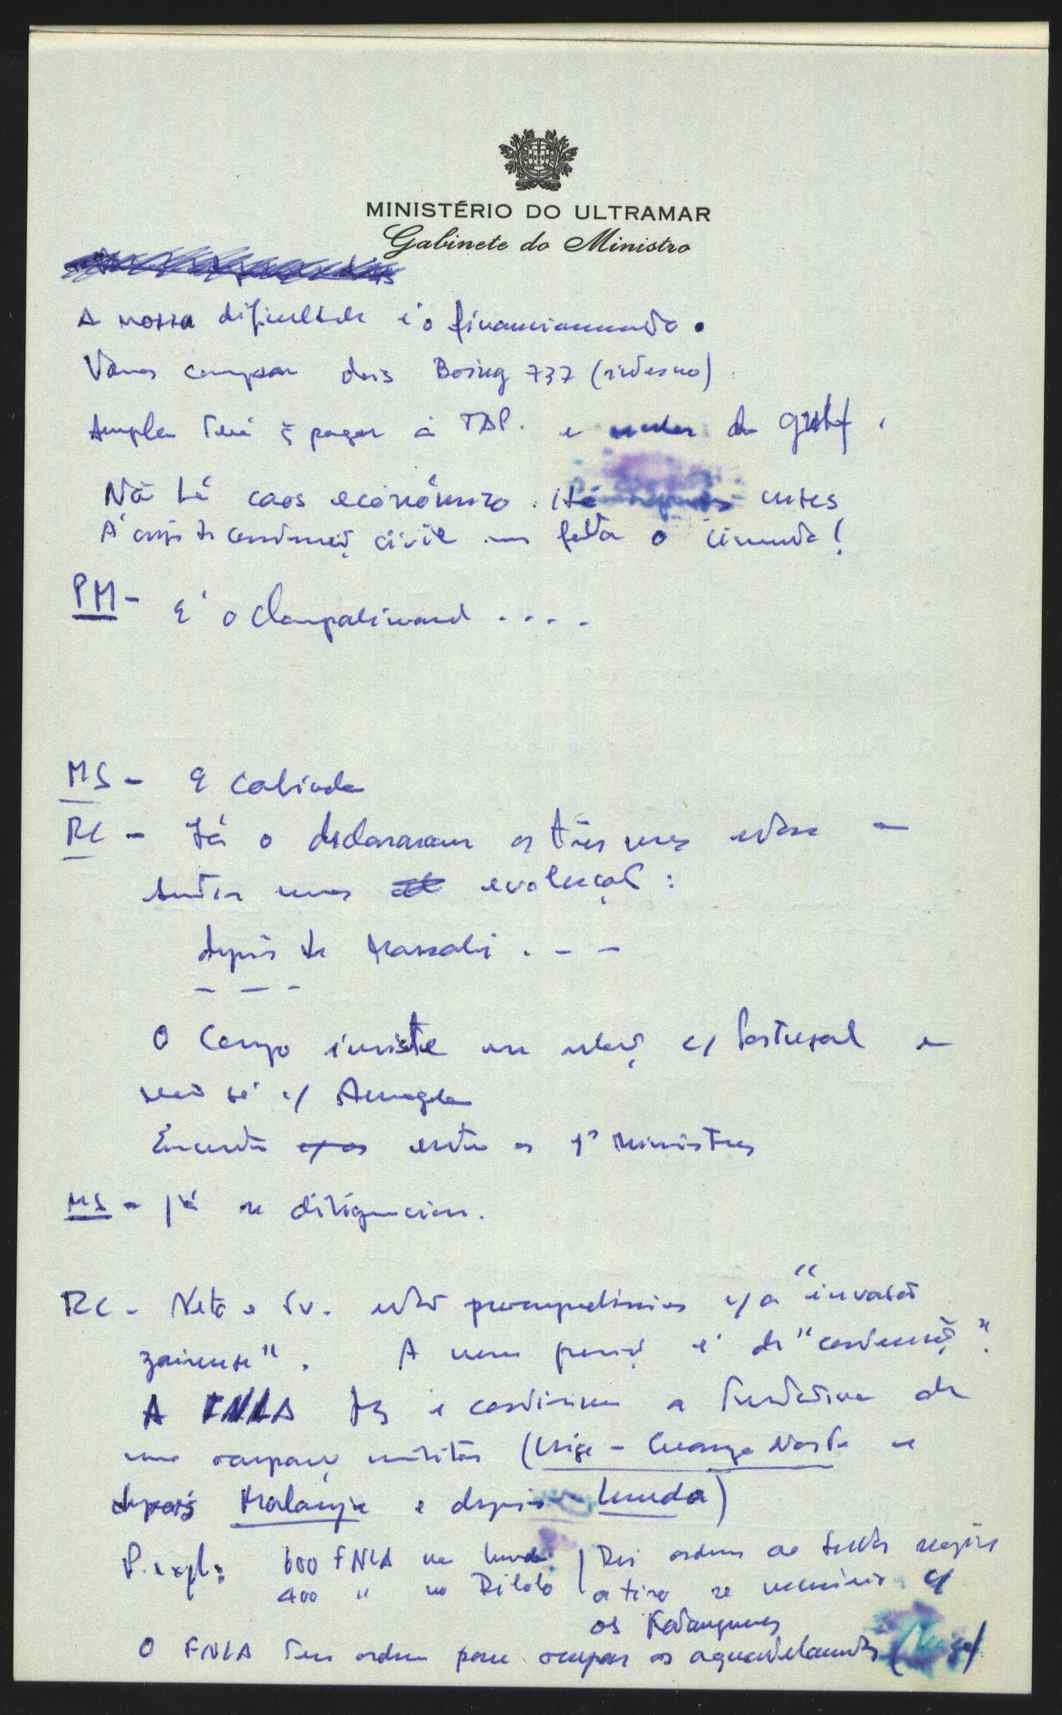 MINISTÉRIO DO ULTRAMAR
Gabinete do Ministro
A nossa dificuldade é o financiamento.
Vamos comprar dois Boeing 737 (interno)
Angola terá q pagar à TAP. e
Não há caos económico. Há antes
civil falta o cimento!
PM - E' o Champalimaud ....
MS - E Cabinda
RC - Já o declararam os três
evolução:
depois de Massabi . - -
- - -
O Congo insiste na relaç c/ Portugal e
não só c/ Angola
Encontro entre os 1º Ministros
MS - Já se diligenciou.
RC - Neto e Sv. estão c/ a "invasão
zairense". A é de "contenção".
A FNLA fez e continua a tentativa de
uma ocupaç militar (Uige - Cuanza Norte e
depois Malanje e depois Lunda)
P. expl: 600 FNLA na Lunda
400 " no Dilolo
Dei ordem ao
a tiro se necessário c/
os Katangueses
O FNLA tem ordem para ocupar os aquartelamentos